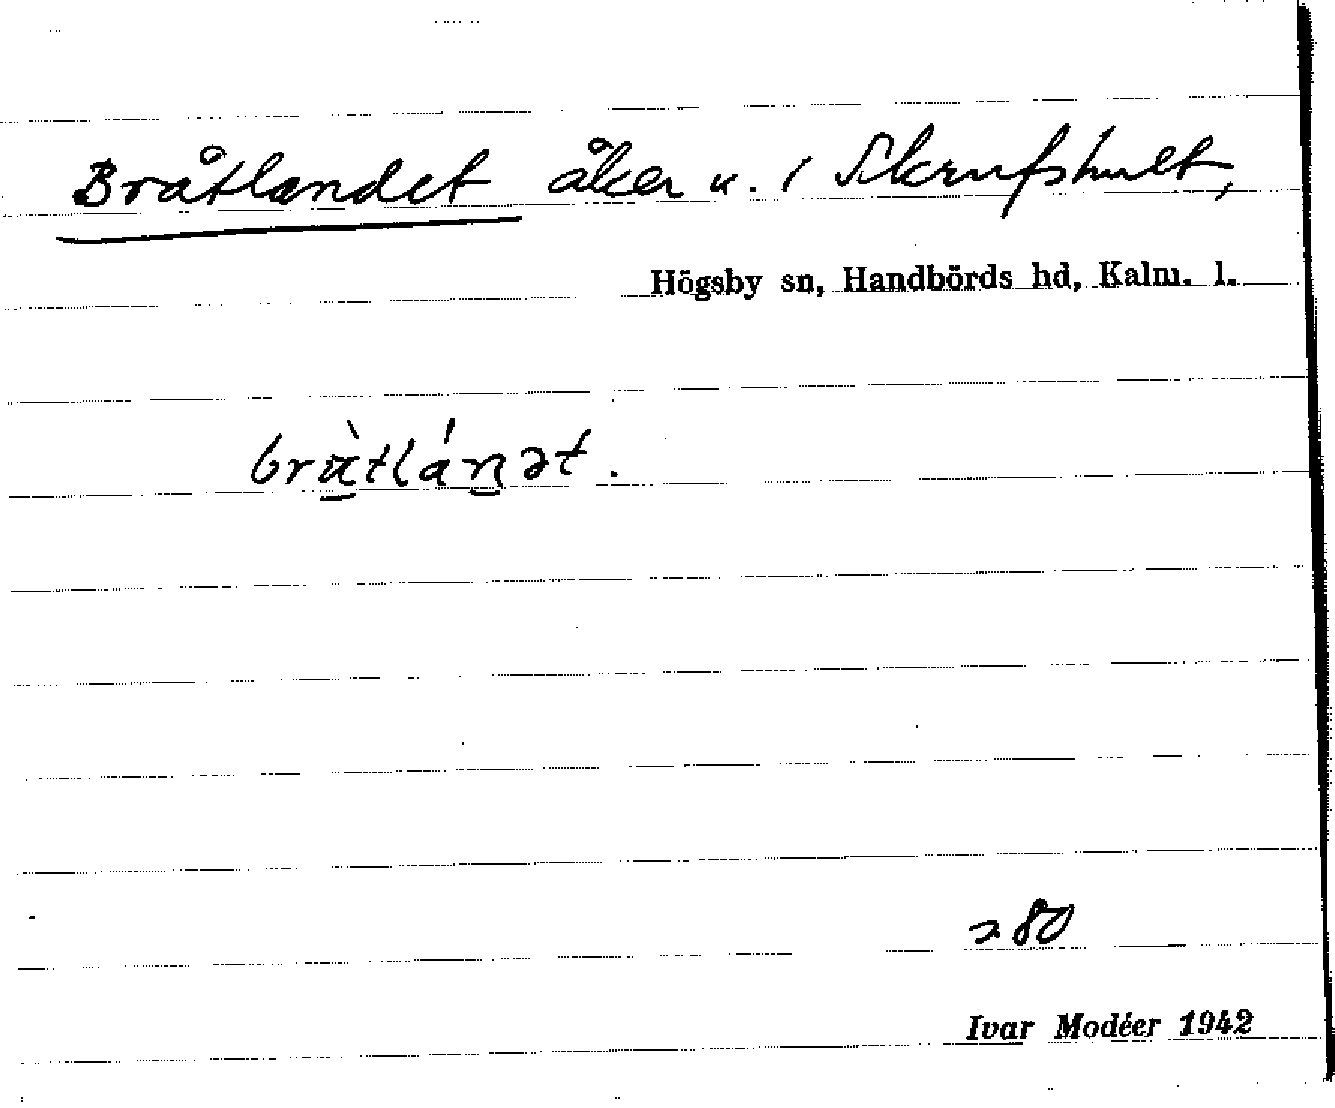 Bråtlandet åker u. / Skrufshult,
Högsby sn, Handbörds hd, Kalm. l.
bràtlánət.
280
Ivar Modéer 1942